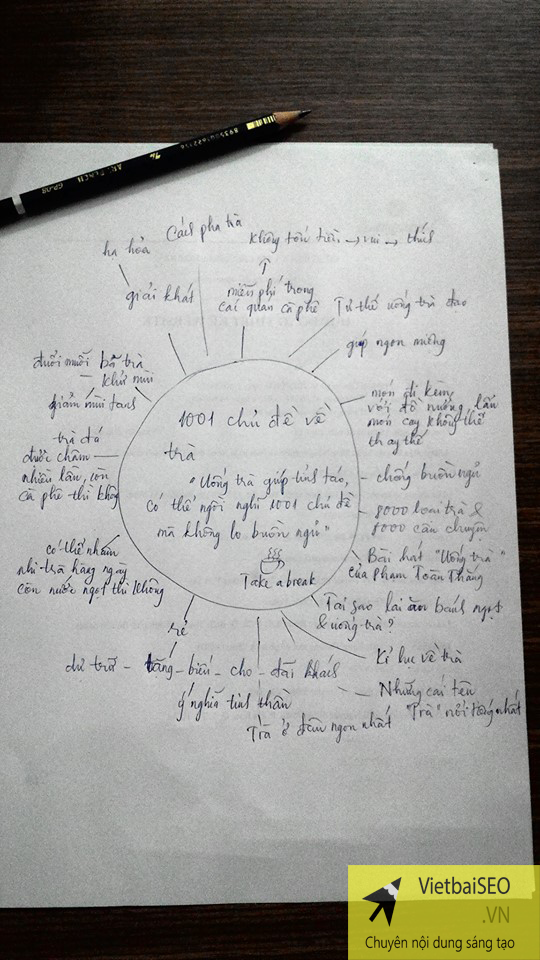 8935001622116
ART PENCIL
GP-03
Cách pha trà
hạ hỏa
không tốn tiền → vui → thích
giải khát
miễn phí trong
các quán cà phê
Tư thế uống trà đạo
giúp ngon miệng
đuổi muỗi
bã trà
khử mùi
giảm mùi tanh
món đi kèm
với đồ nướng, lẩu
món cay không thể
thay thế
1001 chủ đề về
trà
trà đá
được châm
nhiều lần, còn
cà phê thì không
"Uống trà giúp tỉnh táo,
có thể ngồi nghĩ 1001 chủ đề
mà không lo buồn ngủ"
Take a break
chống buồn ngủ
8000 loại trà &
8000 câu chuyện
Bài hát "Uống trà"
của Phạm Toàn Thắng
có thể nhâm
nhi trà hàng ngày
còn nước ngọt thì không
Tại sao lại ăn bánh ngọt
& uống trà?
rẻ
Kỉ lục về trà
dự trữ - tặng - biếu - cho - đãi khách
Những cái tên
"Trà" nổi tiếng nhất
ý nghĩa tinh thần
Trà ở đâu ngon nhất
VietbaiSEO
.VN
Chuyên nội dung sáng tạo